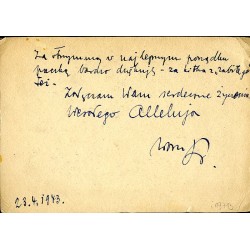 Za otrzymaną w najlepszym porządku
paczkę bardzo dziękuję - za kilka
Załączam Wam serdeczne życzenia
Wesołego Alleluja
28.4.1943.